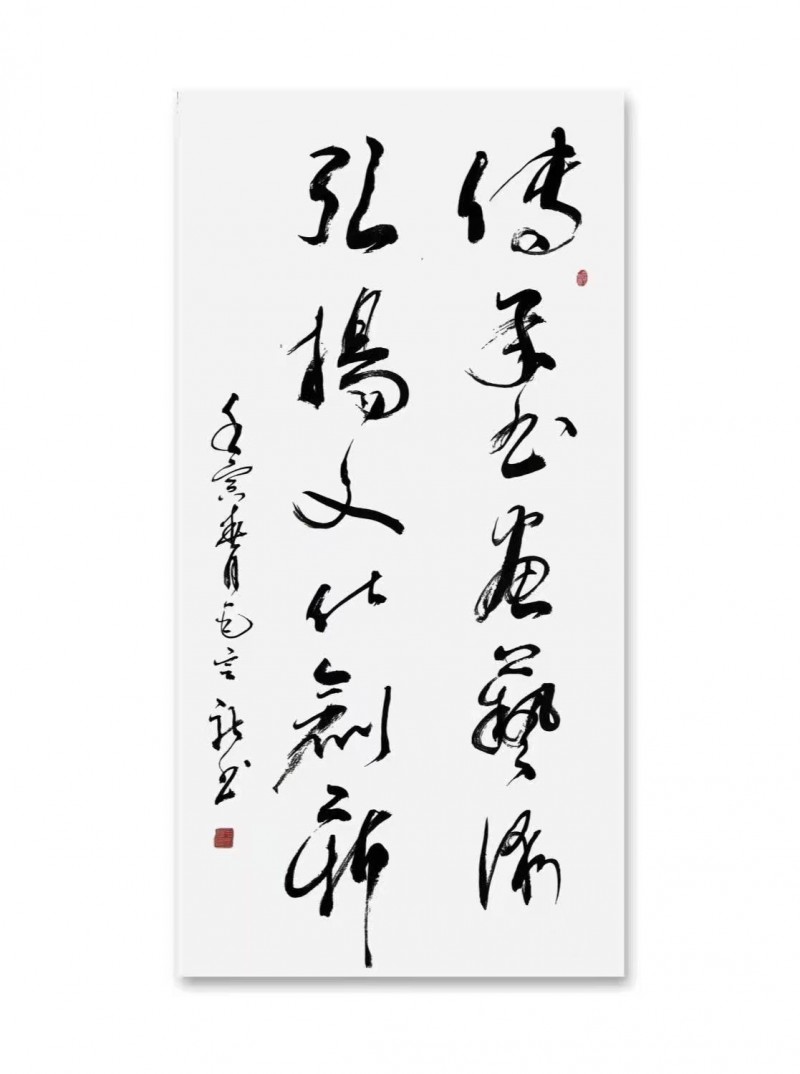 傳承書畫藝術
弘揚文化創新
壬寅春月 言 書